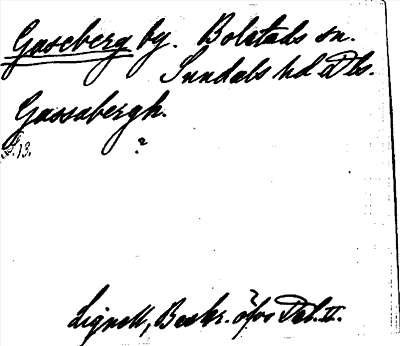 Gaseberg by. Bolstads sn.
Sundals hd Dls.
Gassabergh.
s. 13. ?
Lignell, Beskr. öfver Dal. II.